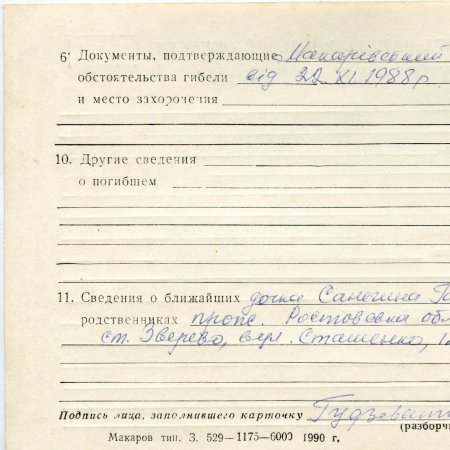 6· Документы, подтверждающие Макарівський
обстоятельства гибели від 22 XI 1988 р
и место захоронения
10. Другие сведения
о погибшем
11. Сведения о ближайших дочка
родственниках прож. Ростовська обл
ст. Зверево, вул. Сташенко,
Подпись лица, заполнившего карточку
(разборчи
Макаров тип. З. 529—1175—6000 1990 г.